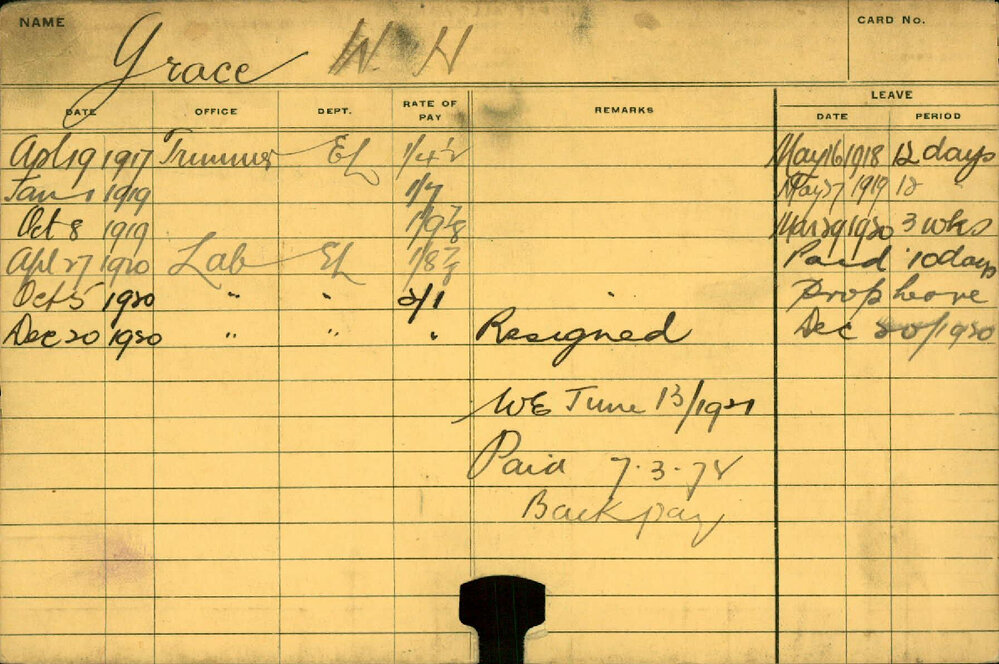 NAME Grace W. H CARD No.
LEAVE
DATE OFFICE DEPT. RATE OF PAY REMARKS DATE PERIOD
Apl 19 1917 Trimmer EL 1/4½ May 16 1918 12 days
Jan 1 1919 1/7 May 27 1919 12
Oct 8 1919 1/9⅞ Mar 29 1920 3 wks
Apl 27 1920 Lab EL 1/8 Paid 10 days
Oct 5 1920 " " 2/1 Prop leave
Dec 20 1920 " " " Resigned Dec 20/1920
WE June 13/1921
Paid 7.3.78
Back pay